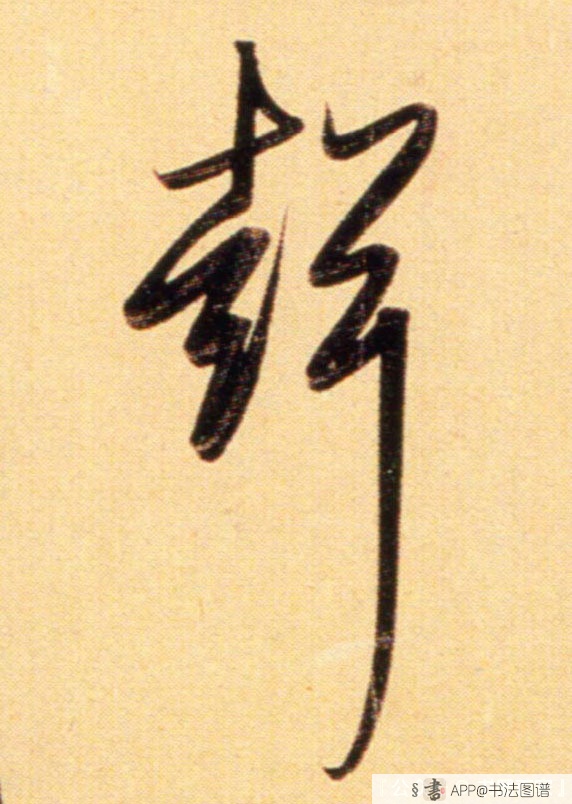 聲
§ 書 APP@书法图谱